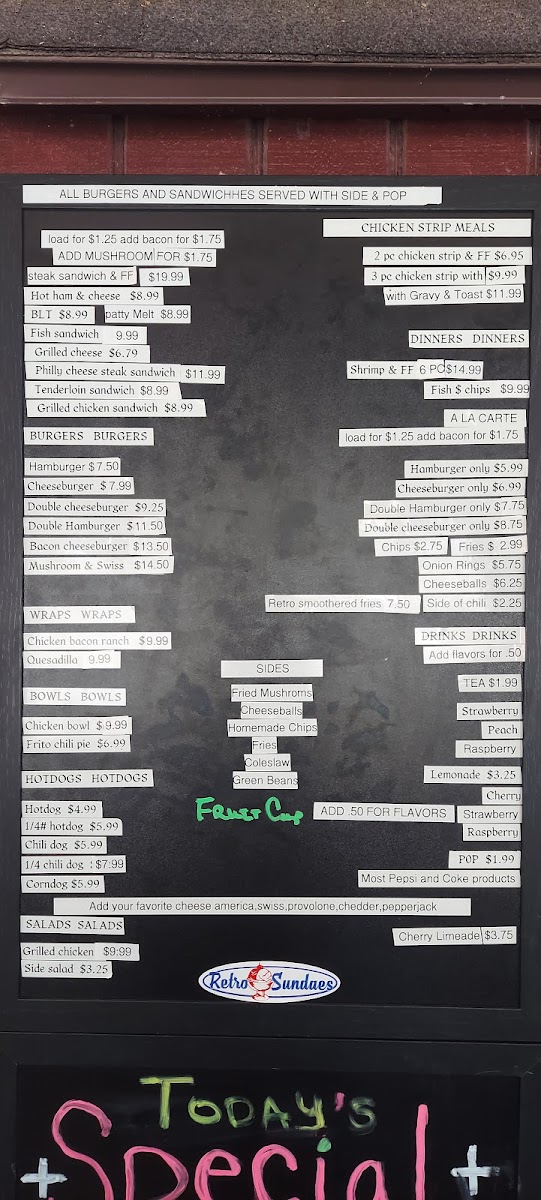 ALL BURGERS AND SANDWICHHES SERVED WITH SIDE & POP
load for $1.25 add bacon for $1.75
ADD MUSHROOM FOR $1.75
steak sandwich & FF $19.99
Hot ham & cheese $8.99
BLT $8.99 patty Melt $8.99
Fish sandwich 9.99
Grilled cheese $6.79
Philly cheese steak sandwich $11.99
Tenderloin sandwich $8.99
Grilled chicken sandwich $8.99
BURGERS BURGERS
Hamburger $7.50
Cheeseburger $7.99
Double cheeseburger $9.25
Double Hamburger $11.50
Bacon cheeseburger $13.50
Mushroom & Swiss $14.50
WRAPS WRAPS
Chicken bacon ranch $9.99
Quesadilla 9.99
BOWLS BOWLS
Chicken bowl $9.99
Frito chili pie $6.99
HOTDOGS HOTDOGS
Hotdog $4.99
1/4# hotdog $5.99
Chili dog $5.99
1/4 chili dog :$7:99
Corndog $5.99
SIDES
Fried Mushroms
Cheeseballs
Homemade Chips
Fries
Coleslaw
Green Beans
FRUIT CUP
CHICKEN STRIP MEALS
2 pc chicken strip & FF $6.95
3 pc chicken strip with $9.99
with Gravy & Toast $11.99
DINNERS DINNERS
Shrimp & FF 6 PC $14.99
Fish $ chips $9.99
A LA CARTE
load for $1.25 add bacon for $1.75
Hamburger only $5.99
Cheeseburger only $6.99
Double Hamburger only $7.75
Double cheeseburger only $8.75
Chips $2.75 Fries $ 2.99
Onion Rings $5.75
Cheeseballs $6.25
Retro smoothered fries 7.50 Side of chili $2.25
DRINKS DRINKS
Add flavors for .50
TEA $1.99
Strawberry
Peach
Raspberry
Lemonade $3.25
Cherry
ADD .50 FOR FLAVORS Strawberry
Raspberry
POP $1.99
Most Pepsi and Coke products
Add your favorite cheese america,swiss,provolone,chedder,pepperjack
SALADS SALADS
Grilled chicken $9:99
Side salad $3.25
Cherry Limeade $3.75
Retro Sundaes
TODAY'S
Special